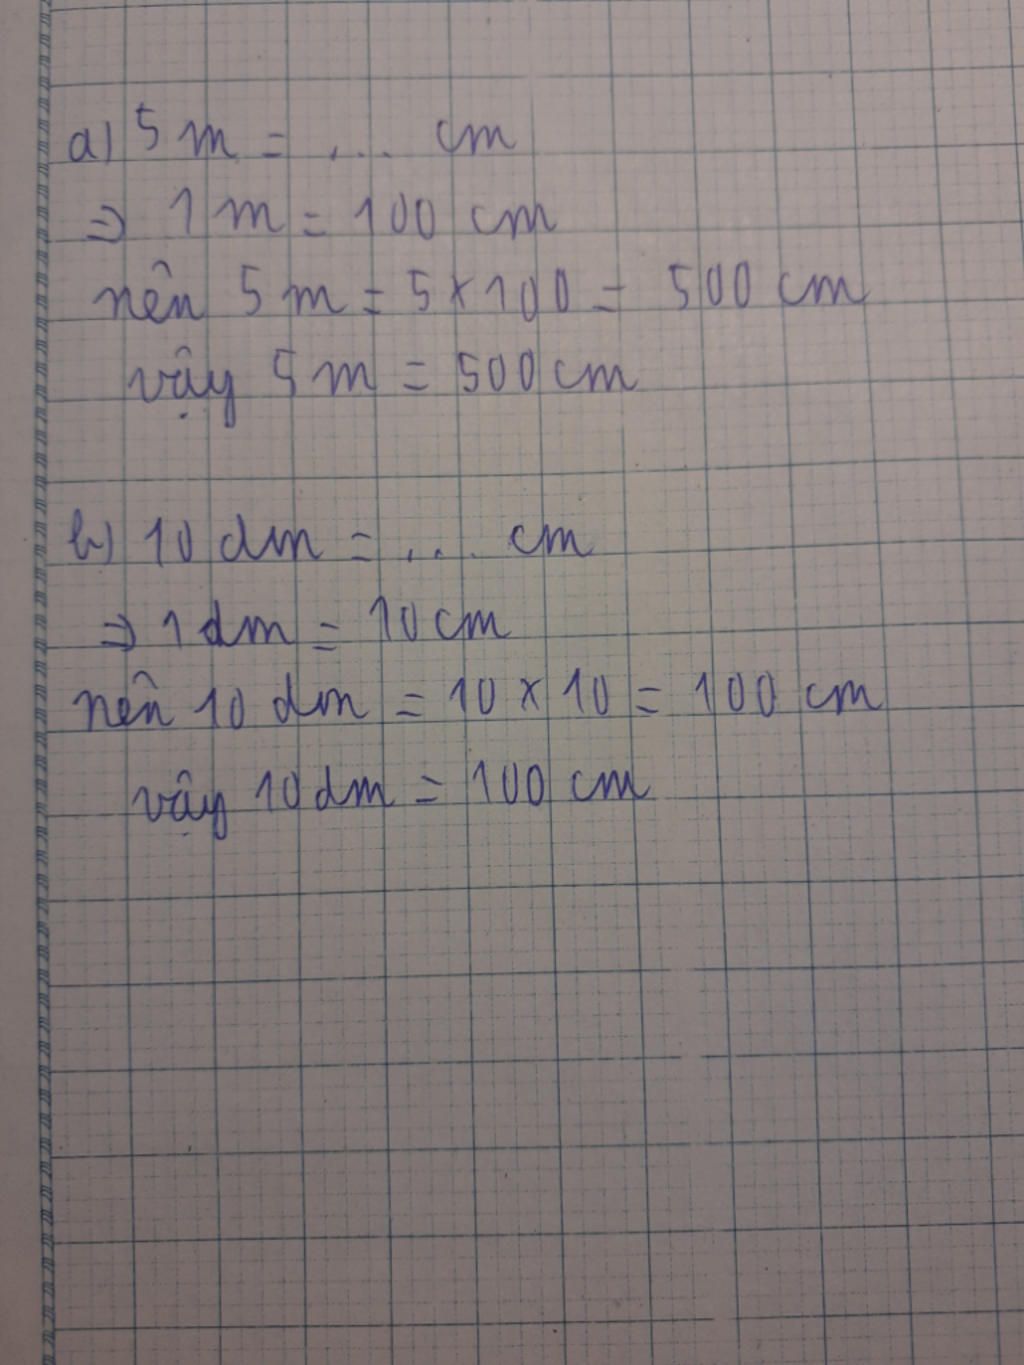 a) 5 m = ... cm
⇒ 1 m = 100 cm
nên 5 m = 5 × 100 = 500 cm
vậy 5 m = 500 cm
b) 10 dm = ... cm
⇒ 1 dm = 10 cm
nên 10 dm = 10 × 10 = 100 cm
vậy 10 dm = 100 cm